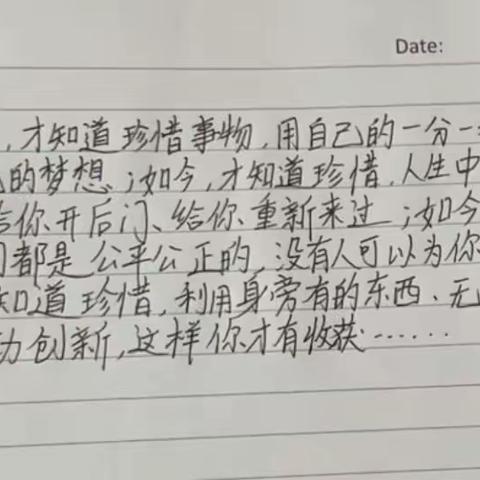 Date:
，才知道珍惜事物，用自己的一分一
的梦想；如今，才知道珍惜，人生中
给你开后门、给你重新来过；如今
都是公平公正的，没有人可以为你
知道珍惜，利用身旁有的东西、无
创新，这样你才有收获……